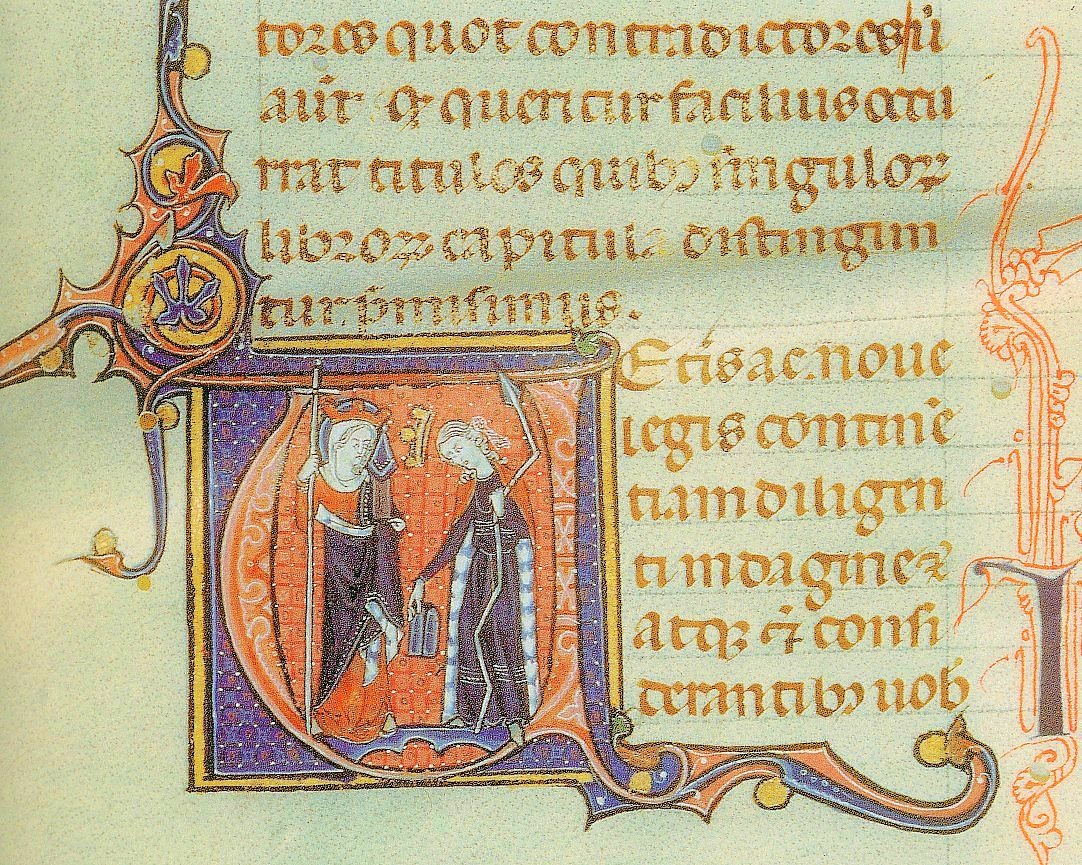 tores quot contradictores
aūt qͦ queritur facilius occu
rrat titulos quibꝫ singuloꝝ
libroꝝ capitula distingun
tur p̄misimus.
VEt̄is ac noue
legis contine
tiam diligen
ti indagine ⁊
atqꝫ ⁊̄ consi
derantibꝫ nob
I